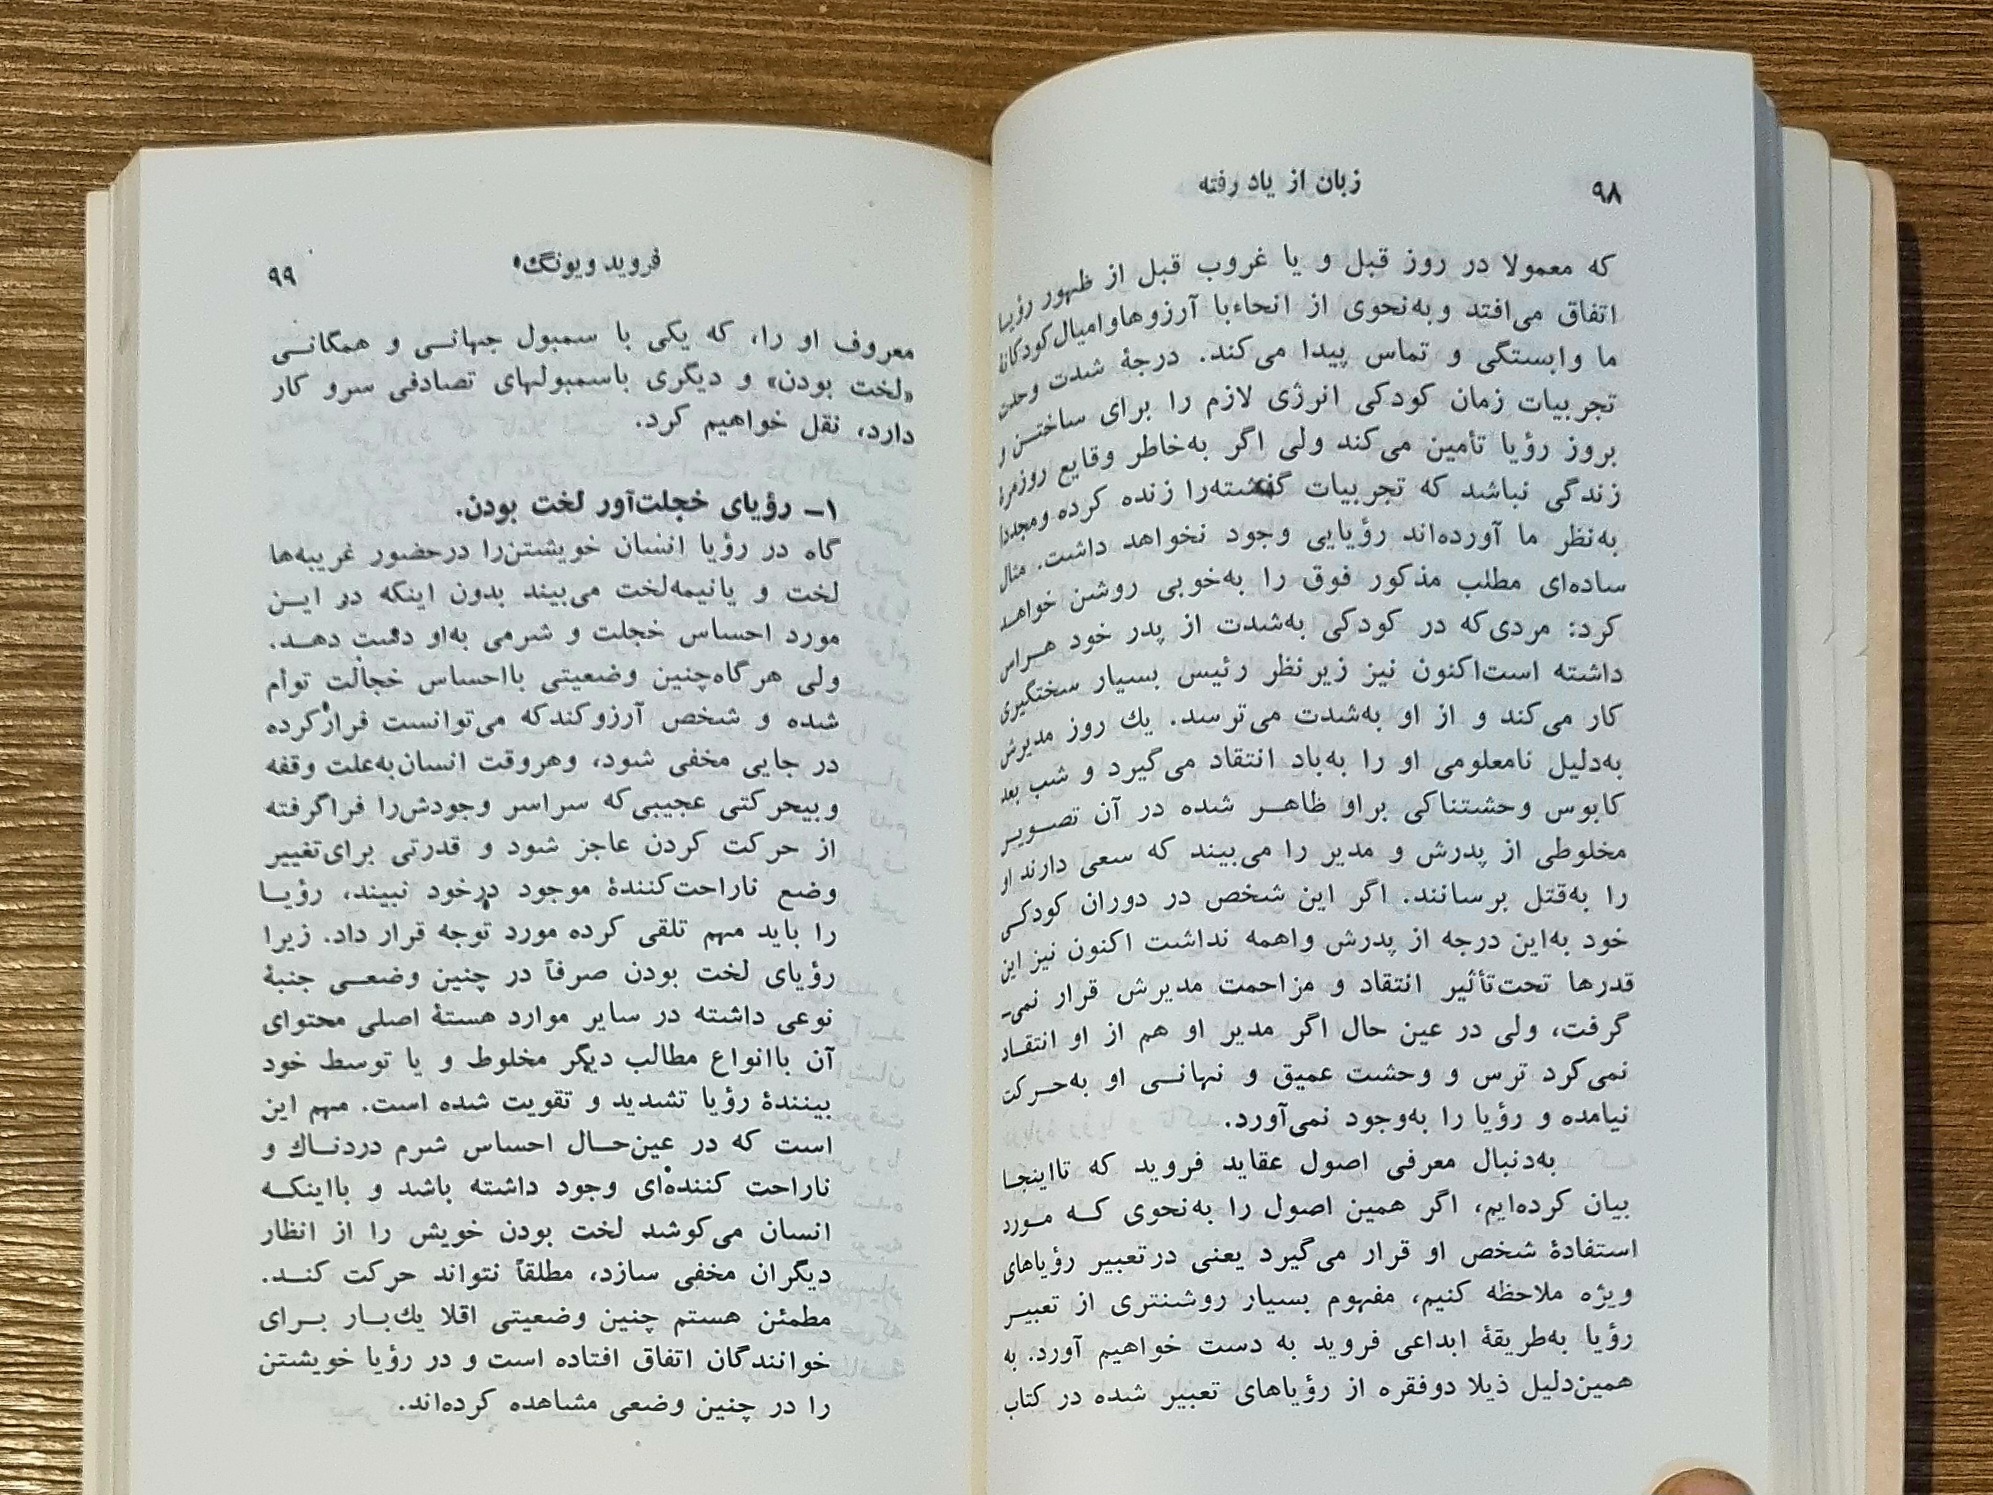 ۹۸
زبان از یاد رفته
که معمولا در روز قبل و یا غروب قبل از ظهور رؤیا
اتفاق می‌افتد و به‌نحوی از انحاء با آرزوها و امیال کودکانهٔ
ما وابستگی و تماس پیدا می‌کند. درجهٔ شدت وحدت
تجربیات زمان کودکی انرژی لازم را برای ساختن و
بروز رؤیا تأمین می‌کند ولی اگر به‌خاطر وقایع روزمرهٔ
زندگی نباشد که تجربیات گذشته‌را زنده کرده ومجددا
به‌نظر ما آورده‌اند رؤیایی وجود نخواهد داشت. مثال
ساده‌ای مطلب مذکور فوق را به‌خوبی روشن خواهد
کرد: مردی‌که در کودکی به‌شدت از پدر خود هراس
داشته است‌اکنون نیز زیرنظر رئیس بسیار سختگیری
کار می‌کند و از او به‌شدت می‌ترسد. یك روز مدیرش
به‌دلیل نامعلومی او را به‌باد انتقاد می‌گیرد و شب بعد
کابوس وحشتناکی براو ظاهر شده در آن تصویر
مخلوطی از پدرش و مدیر را می‌بیند که سعی دارند او
را به‌قتل برسانند. اگر این شخص در دوران کودکی
خود به‌این درجه از پدرش واهمه نداشت اکنون نیز این
قدرها تحت‌تأثیر انتقاد و مزاحمت مدیرش قرار نمی‌ـ
گرفت، ولی در عین حال اگر مدیر او هم از او انتقاد
نمی‌کرد ترس و وحشت عمیق و نهانی او به‌حرکت
نیامده و رؤیا را به‌وجود نمی‌آورد.
به‌دنبال معرفی اصول عقاید فروید که تااینجا
بیان کرده‌ایم، اگر همین اصول را به‌نحوی که مورد
استفادهٔ شخص او قرار می‌گیرد یعنی درتعبیر رؤیاهای
ویژه ملاحظه کنیم، مفهوم بسیار روشنتری از تعبیر
رؤیا به‌طریقهٔ ابداعی فروید به دست خواهیم آورد. به
همین‌دلیل ذیلا دوفقره از رؤیاهای تعبیر شده در کتاب
فروید و یونگ
۹۹
معروف او را، که یکی با سمبول جهانی و همگانی
«لخت بودن» و دیگری باسمبولهای تصادفی سرو کار
دارد، نقل خواهیم کرد.
۱ـ رؤیای خجلت‌آور لخت بودن.
گاه در رؤیا انسان خویشتن‌را درحضور غریبه‌ها
لخت و یانیمه‌لخت می‌بیند بدون اینکه در این
مورد احساس خجلت و شرمی به‌او دست دهد.
ولی هرگاه‌چنین وضعیتی بااحساس خجالت توام
شده و شخص آرزوکندکه می‌توانست فرارکرده
در جایی مخفی شود، وهروقت انسان‌به‌علت وقفه
وبیحرکتی عجیبی‌که سراسر وجودش‌را فراگرفته
از حرکت کردن عاجز شود و قدرتی برای‌تغییر
وضع ناراحت‌کنندهٔ موجود درخود نبیند، رؤیا
را باید مهم تلقی کرده مورد توجه قرار داد. زیرا
رؤیای لخت بودن صرفاً در چنین وضعی جنبهٔ
نوعی داشته در سایر موارد هستهٔ اصلی محتوای
آن باانواع مطالب دیگر مخلوط و یا توسط خود
بینندهٔ رؤیا تشدید و تقویت شده است. مهم این
است که در عین‌حال احساس شرم دردناك و
ناراحت کننده‌ای وجود داشته باشد و بااینکه
انسان می‌کوشد لخت بودن خویش را از انظار
دیگران مخفی سازد، مطلقاً نتواند حرکت کند.
مطمئن هستم چنین وضعیتی اقلا یك‌بار برای
خوانندگان اتفاق افتاده است و در رؤیا خویشتن
را در چنین وضعی مشاهده کرده‌اند.